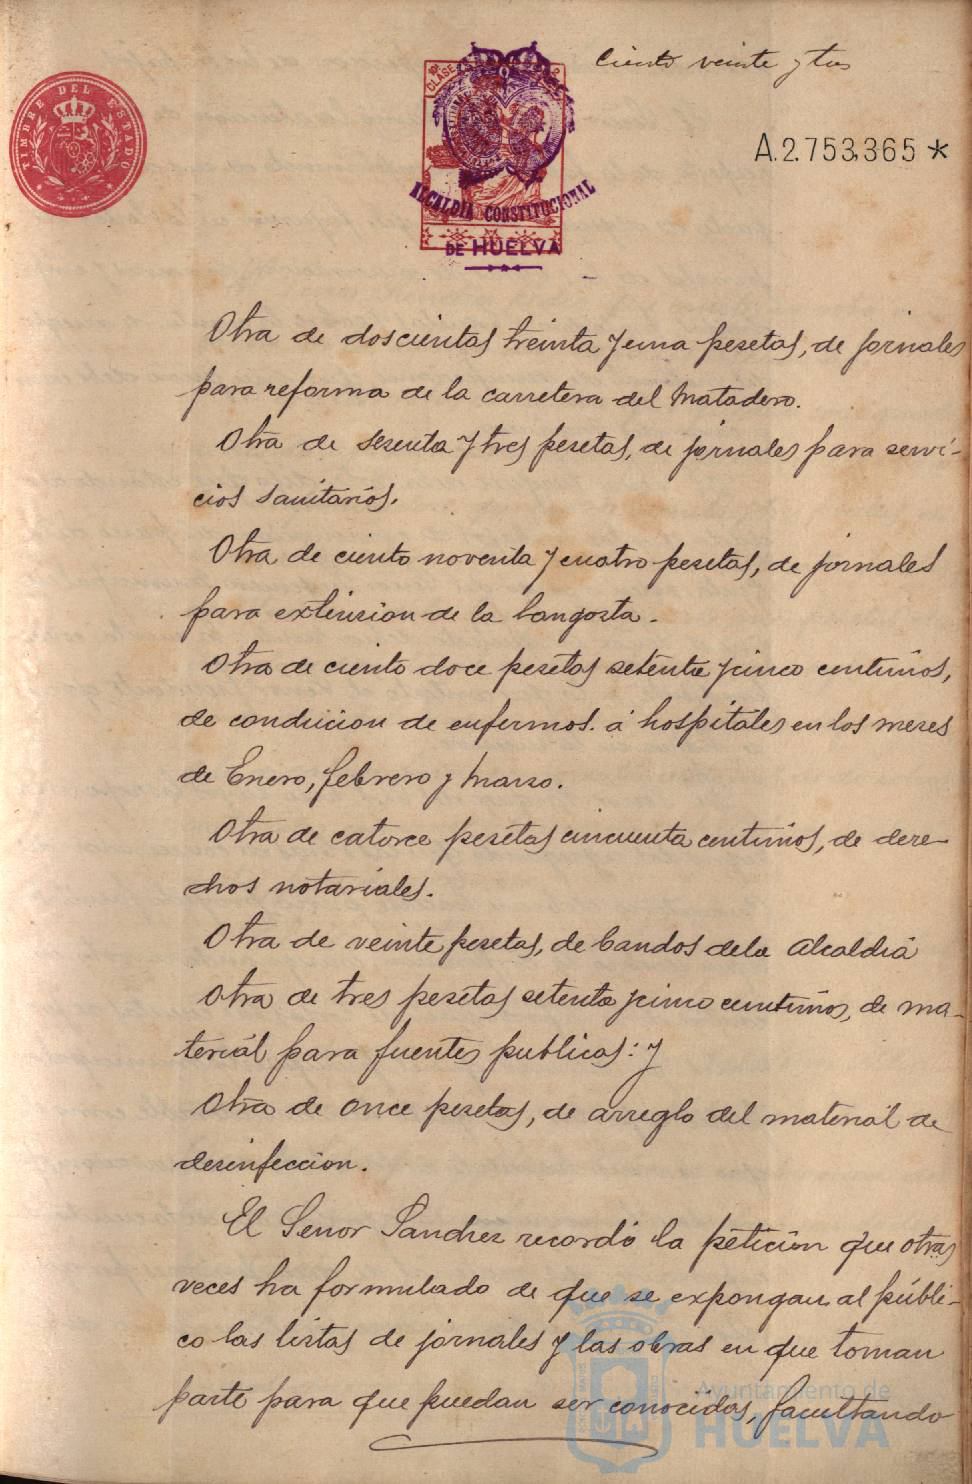 Ciento veinte y tres
TIMBRE DEL ESTADO
CLASE
A.2.753,365 *
ALCALDIA CONSTITUCIONAL
DE HUELVA
Otra de doscientas treinta y una pesetas, de jornales
para reforma de la carretera del Matadero.
Otra de sesenta y tres pesetas, de jornales para servi-
cios sanitarios.
Otra de ciento noventa y cuatro pesetas, de jornales
para extincion de la langosta.
Otra de ciento doce pesetas setenta y cinco centimos,
de conduccion de enfermos. á hospitales en los meses
de Enero, febrero y Marzo.
Otra de catorce pesetas cincuenta centimos, de dere-
chos notariales.
Otra de veinte pesetas, de bandos de la Alcaldia
Otra de tres pesetas setenta y cinco centimos, de ma-
terial para fuentes publicas: y
Otra de once pesetas, de arreglo del material de
desinfeccion.
El Señor Sanchez recordó la peticion que otras
veces ha formulado de que se expongan al públi-
co las listas de jornales y las obras en que toman
parte para que puedan ser conocidas, facultando
Ayuntamiento de
HUELVA